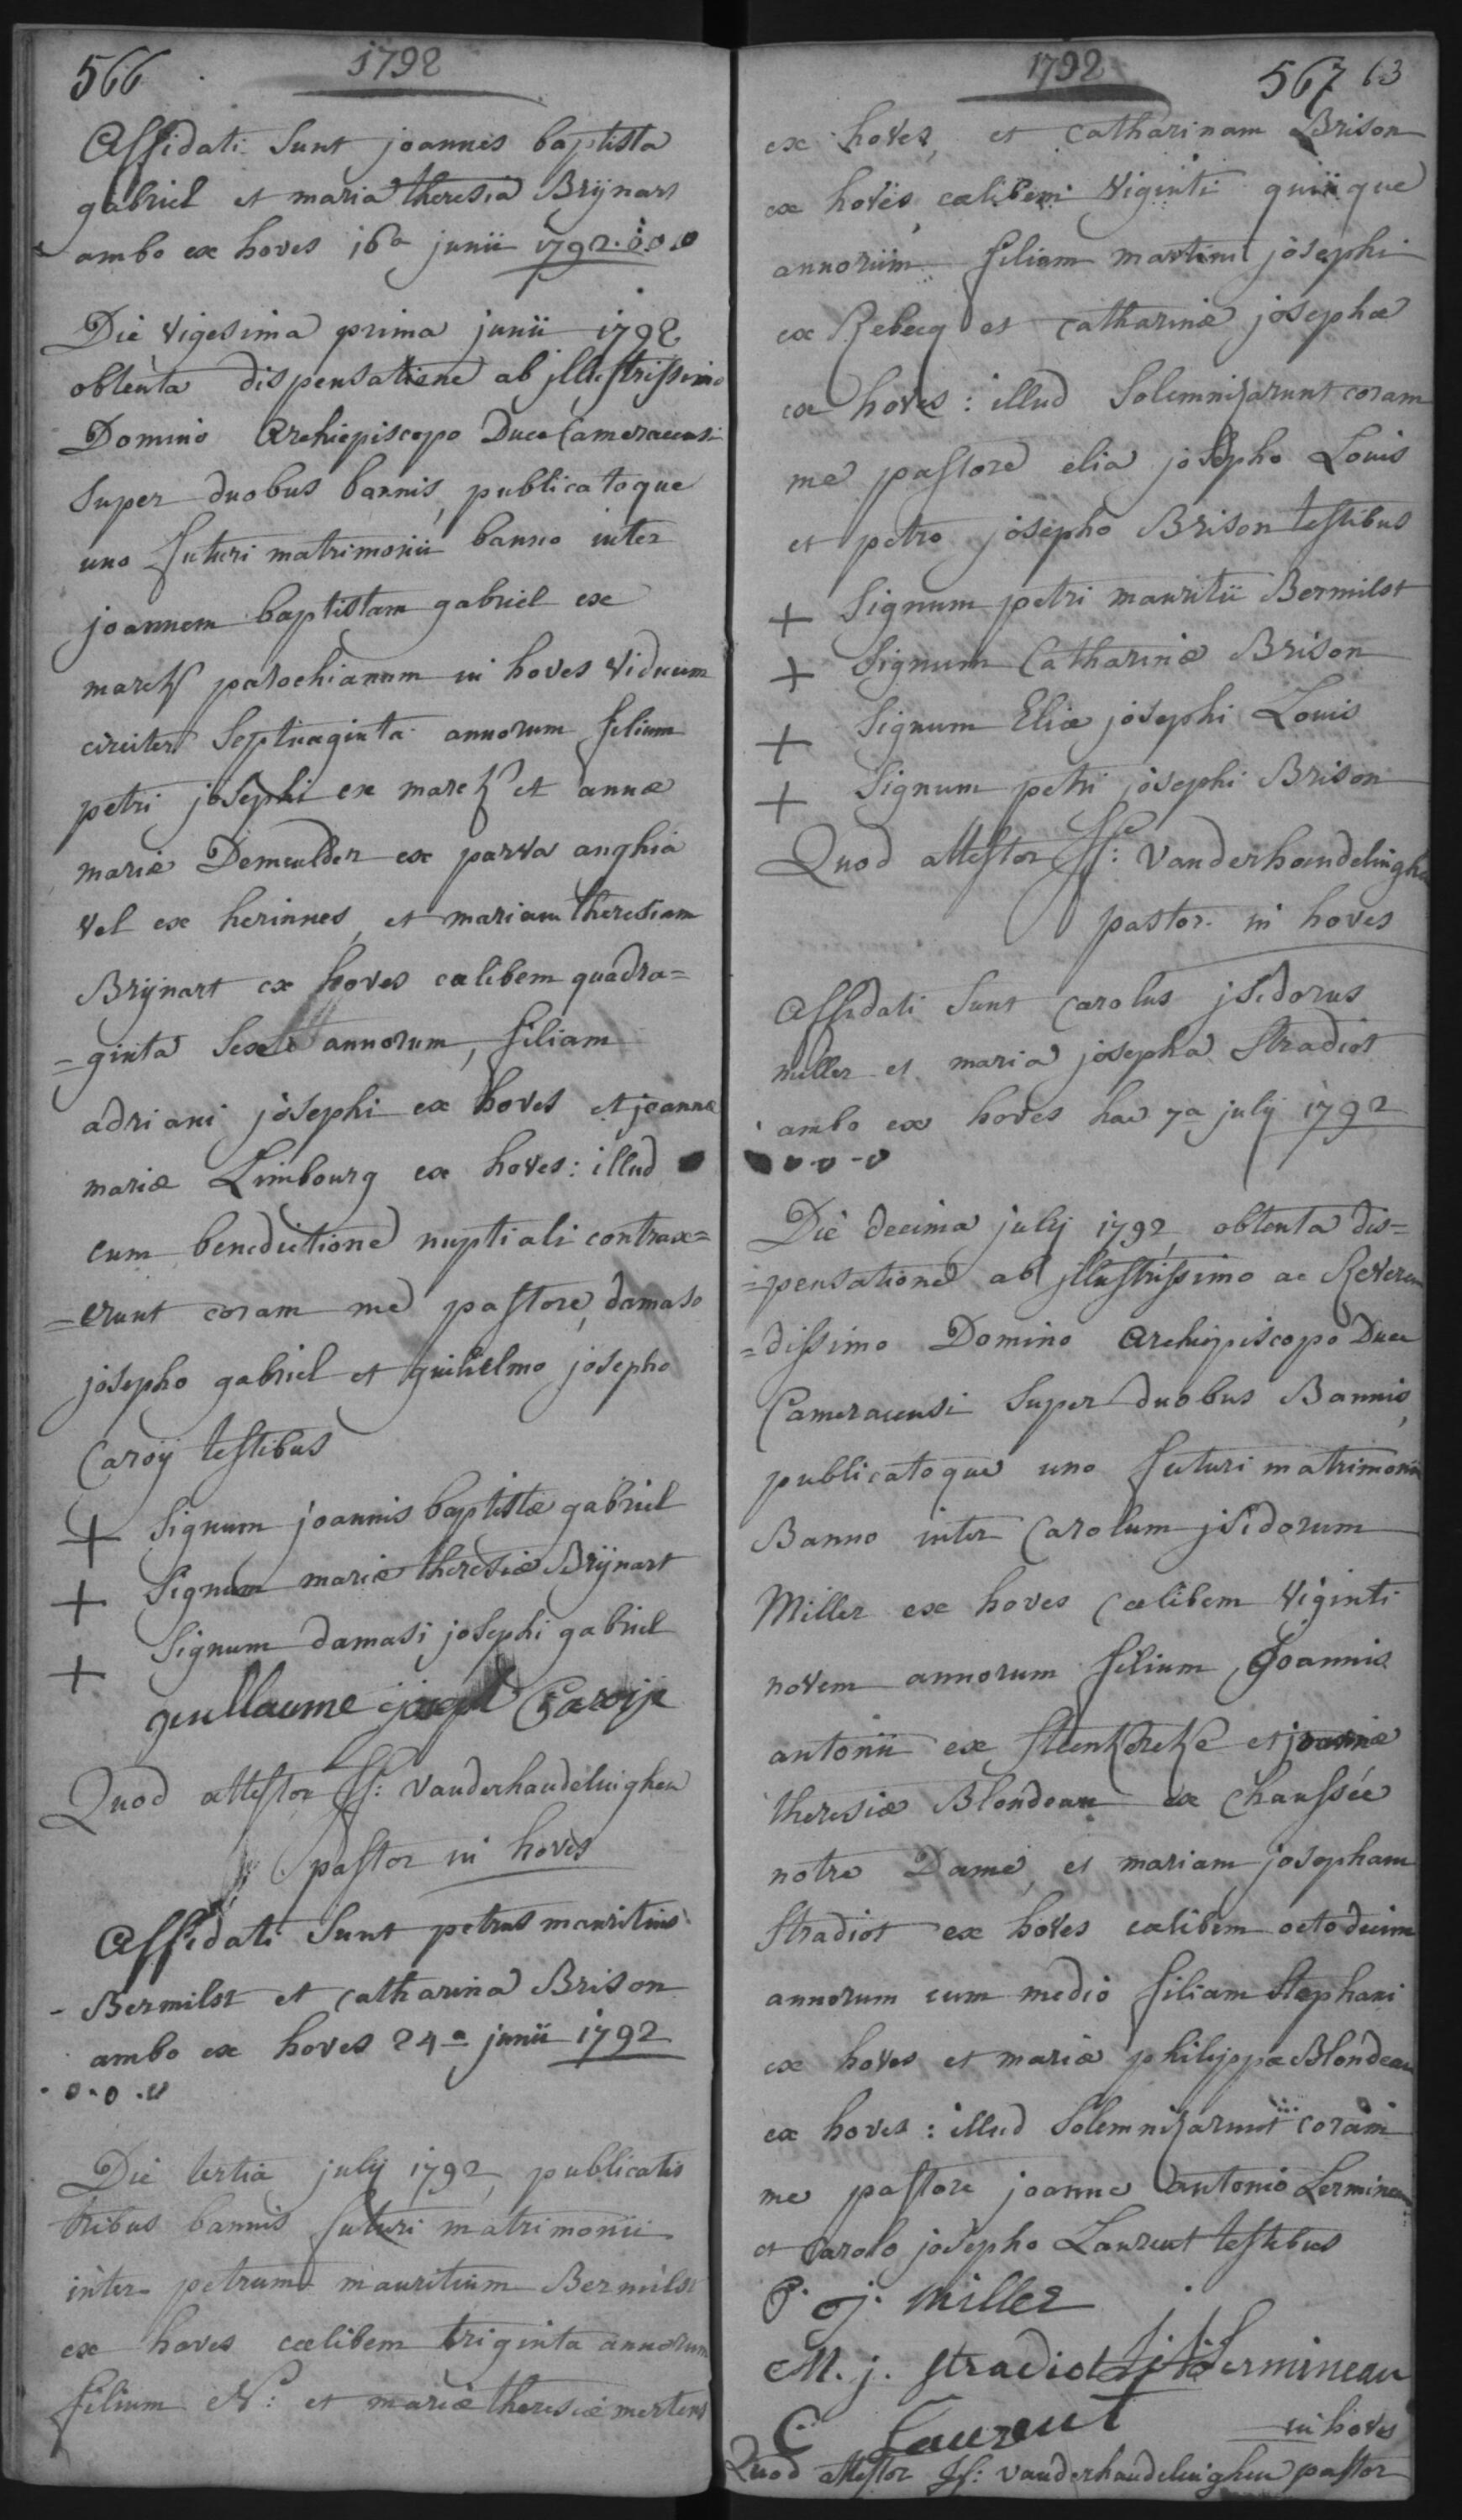 566
1792
Affidati Sunt joannes baptista
gabriel et maria theresia Brÿnart
ambo ex hoves 16a junii 1792.0.0.0
Die vigesima prima junii 1792
obtenta dispensatione ab jllustrissimo
Domino Archiepiscopo Duce Cameracensi
Super duobus bannis, publicatoque
uno futuri matrimonii banno inter
joannem baptistam gabriel ex
marcq parochianum in hoves viduum
circiter Septuaginta annorum filium
petri josephi ex marcq et annæ
mariæ Demeulder ex parva anghia
vel ex herinnes, et mariam theresiam
Brÿnart ex hoves cælibem quadra=
=ginta Sex annorum, filiam
adriani josephi ex hoves et joannæ
mariæ Limbourg ex hoves: illud
cum benedictione nuptiali contrax=
=erunt coram me pastore, damaso
josepho gabriel et guilielmo josepho
Caroÿ testibus
+ Signum joannis baptistæ gabriel
+ Signum mariæ theresiæ Brÿnart
+ Signum damasi josephi gabriel
guillaume joseph Caroÿe
Quod attestor ff: vanderhaudelinghen
pastor in hoves
Affidati Sunt petrus mauritius
Bermilst et catharina Brison
ambo ex hoves 24a junii 1792
.0.0.0
Die tertia julÿ 1792, publicatis
tribus bannis futuri matrimonii
inter petrum mauritium Bermilst
ex hoves cælibem triginta annorum
filium N: et mariæ theresiæ mertens
1792
567 63
ex hoves, et catharinam Brison
ex hoves, cælibem viginti quinque
annorum filiam martini josephi
ex Rebecq et catharinæ josephæ
ex hoves: illud Solemnizarunt coram
me pastore elia josepho Louis
et petro josepho Brison testibus
+ Signum petri mauritii Bermilst
+ Signum Catharinæ Brison
+ Signum Eliæ josephi Louis
+ Signum petri josephi Brison
Quod attestor ff: vanderhaudelinghen
pastor in hoves
Affidati Sunt carolus jsidorus
miller et maria josepha Stradiot
ambo ex hoves hac 7a julÿ 1792
0-0-0
Die decima julÿ 1792, obtenta dis=
=pensatione ab jllustrissimo ac Reveren
=dissimo Domino Archiepiscopo Duce
Cameracensi Super duobus Bannis,
publicatoque uno futuri matrimonii
Banno inter Carolum jsidorum
Miller ex hoves Cælibem viginti
novem annorum filium Joannis
antonii ex Steenkerke et joannæ
theresiæ Blondeau ex Chaussée
notre Dame, et mariam josepham
Stradiot ex hoves cælibem octodecim
annorum cum medio filiam Stephani
ex hoves et mariæ philippæ Blondeau
ex hoves: illud Solemnizarunt coram
me pastore joanne antonio Lermineau
et Carolo josepho Laurent testibus
miller
M. j. stradiot Lermineau
C Laurent
in hoves
Quod attestor ff: vanderhaudelinghen pastor